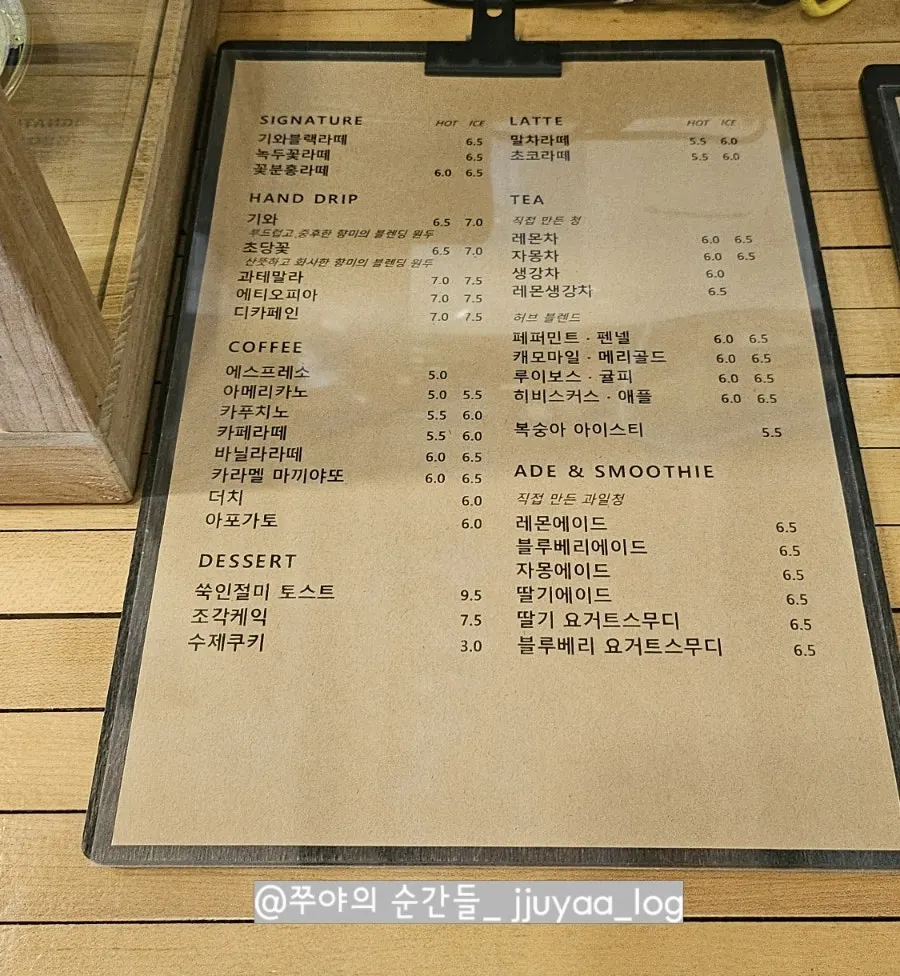 SIGNATURE HOT ICE
기와블랙라떼 6.5
녹두꽃라떼 6.5
꽃분홍라떼 6.0 6.5
HAND DRIP
기와 6.5 7.0
부드럽고 중후한 향미의 블렌딩 원두
초당꽃 6.5 7.0
산뜻하고 화사한 향미의 블렌딩 원두
과테말라 7.0 7.5
에티오피아 7.0 7.5
디카페인 7.0 7.5
COFFEE
에스프레소 5.0
아메리카노 5.0 5.5
카푸치노 5.5 6.0
카페라떼 5.5 6.0
바닐라라떼 6.0 6.5
카라멜 마끼야또 6.0 6.5
더치 6.0
아포가토 6.0
DESSERT
쑥인절미 토스트 9.5
조각케익 7.5
수제쿠키 3.0
LATTE HOT ICE
말차라떼 5.5 6.0
초코라떼 5.5 6.0
TEA
직접 만든 청
레몬차 6.0 6.5
자몽차 6.0 6.5
생강차 6.0
레몬생강차 6.5
허브 블렌드
페퍼민트 · 펜넬 6.0 6.5
캐모마일 · 메리골드 6.0 6.5
루이보스 · 귤피 6.0 6.5
히비스커스 · 애플 6.0 6.5
복숭아 아이스티 5.5
ADE & SMOOTHIE
직접 만든 과일청
레몬에이드 6.5
블루베리에이드 6.5
자몽에이드 6.5
딸기에이드 6.5
딸기 요거트스무디 6.5
블루베리 요거트스무디 6.5
@쭈야의 순간들_ jjuyaa_log